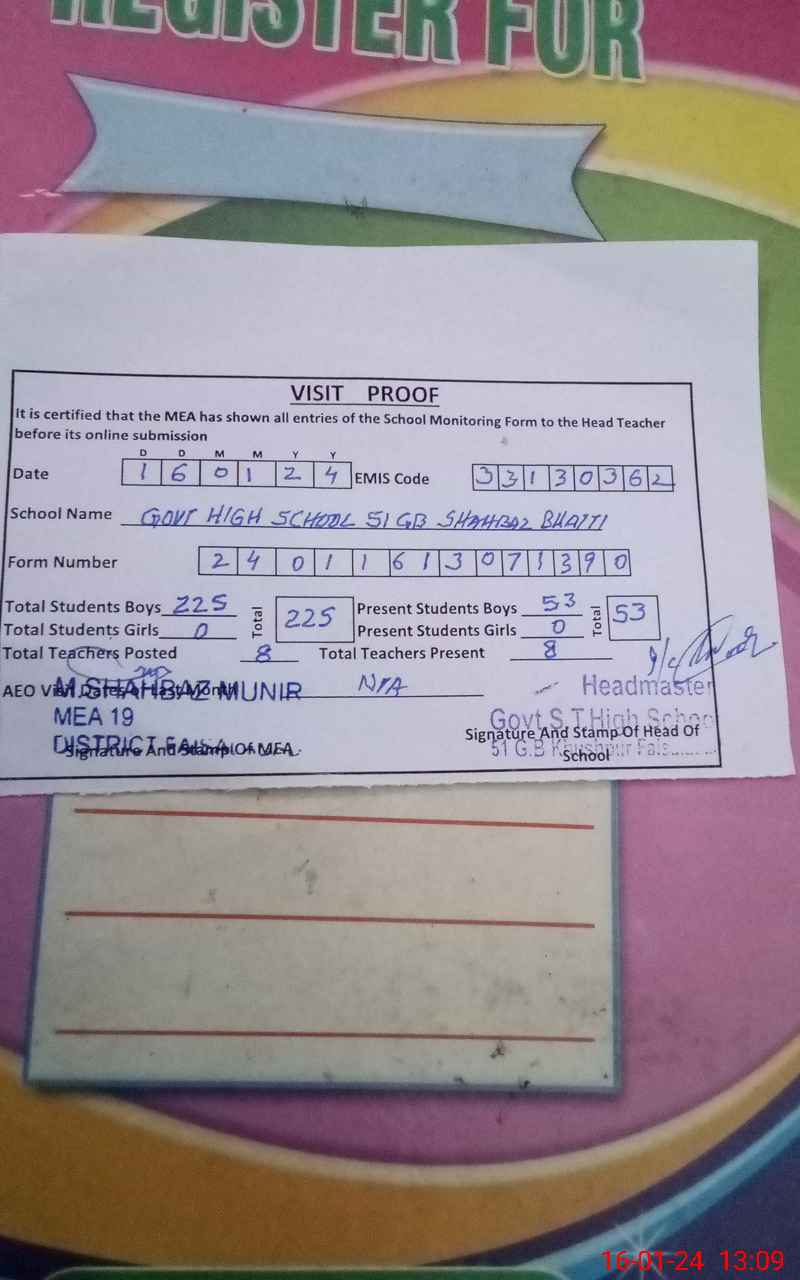 REGISTER FOR
VISIT PROOF
It is certified that the MEA has shown all entries of the School Monitoring Form to the Head Teacher
before its online submission
D D M M Y Y
Date 1 6 0 1 2 4 EMIS Code 3 3 1 3 0 3 6 2
School Name GOVT HIGH SCHOOL 51 GB SHAHBAZ BHATTI
Form Number 2 4 0 1 1 6 1 3 0 7 1 3 9 0
Total Students Boys 225 Total 225 Present Students Boys 53 Total 53
Total Students Girls 0 Present Students Girls 0
Total Teachers Posted 8 Total Teachers Present 8
AEO Visit Dates of Last Month N/A
M.SHAHBAZ MUNIR Headmaster
MEA 19 Govt S.T High School
DISTRICT Signature And Stamp Of Head Of
Signature And Stamp Of MEA 51 G.B Khushpur
School
16-01-24 13:09